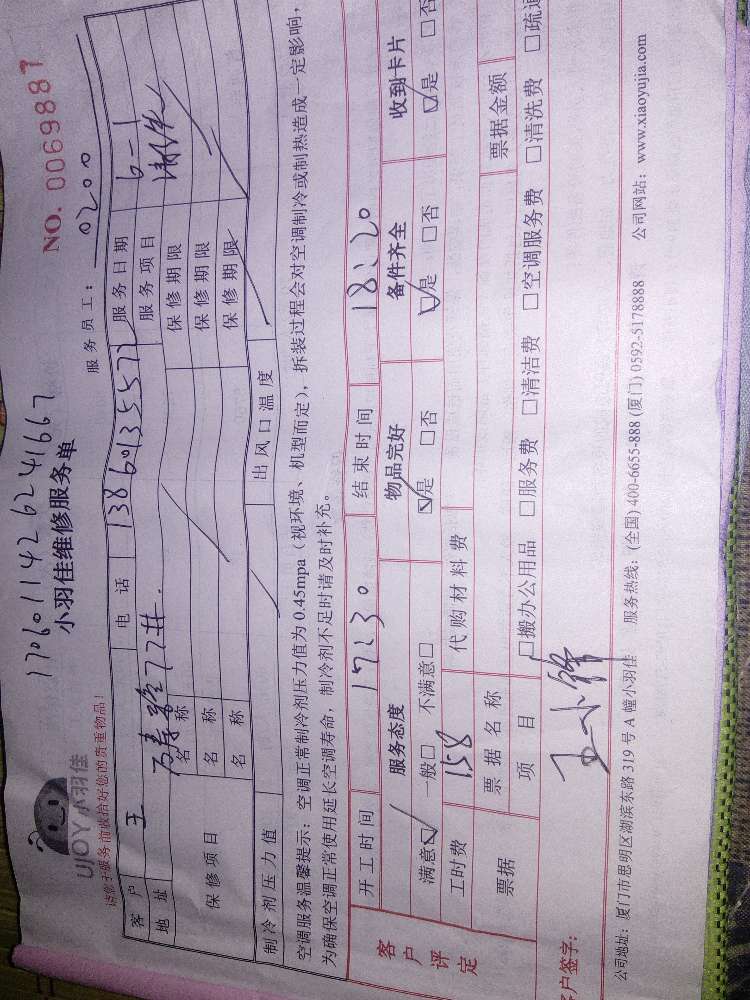 1706011426241667
NO. 0069887
UJOY 小羽佳
小羽佳维修服务单
请您于服务前收拾好您的贵重物品!
服务员工: 0200
客户 王 电话 13860135572 服务日期 6-1
地址 77# 服务项目
保修项目 名称 保修期限
名称 保修期限
名称 保修期限
制冷剂压力值 出风口温度
空调服务温馨提示:空调正常制冷剂压力值为0.45mpa(视环境、机型而定),拆装过程会对空调制冷或制热造成一定影响,
为确保空调正常使用延长空调寿命,制冷剂不足时请及时补充。
客户评定
开工时间 17:30 结束时间 18:20
服务态度 物品完好 备件齐全 收到卡片
满意☑ 一般□ 不满意□ ☑是 □否 ☑是 □否 ☑是 □否
工时费 158 代购材料费
票据 票据名称 票据金额
项目 □搬办公用品 □服务费 □清洁费 □空调服务费 □清洗费 □疏通
客户签字: 王小锋
公司地址:厦门市思明区湖滨东路319号A幢小羽佳 服务热线:(全国)400-6655-888 (厦门)0592-5178888 公司网站:www.xiaoyujia.com